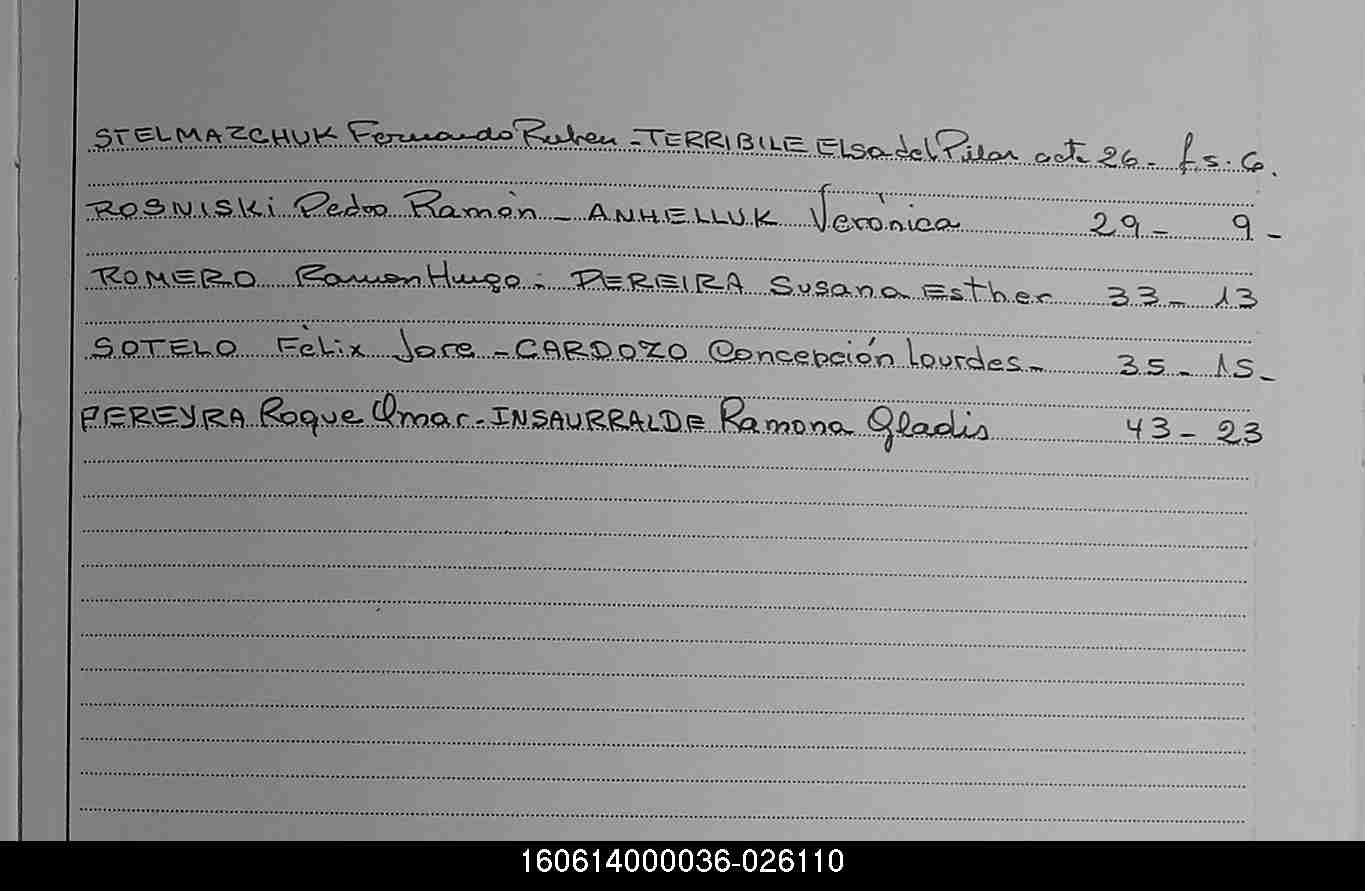 STELMAZCHUK Fernando Ruben - TERRIBILE Elsa del Pilar act. 26 - fs. 6.
ROSNISKI Pedro Ramón - ANHELLUK Verónica 29 - 9 -
ROMERO Ramon Hugo - PEREIRA Susana Esther 33 - 13
SOTELO Félix Jose - CARDOZO Concepción Lourdes - 35 - 15 -
PEREYRA Roque Omar - INSAURRALDE Ramona Gladis 43 - 23
160614000036-026110